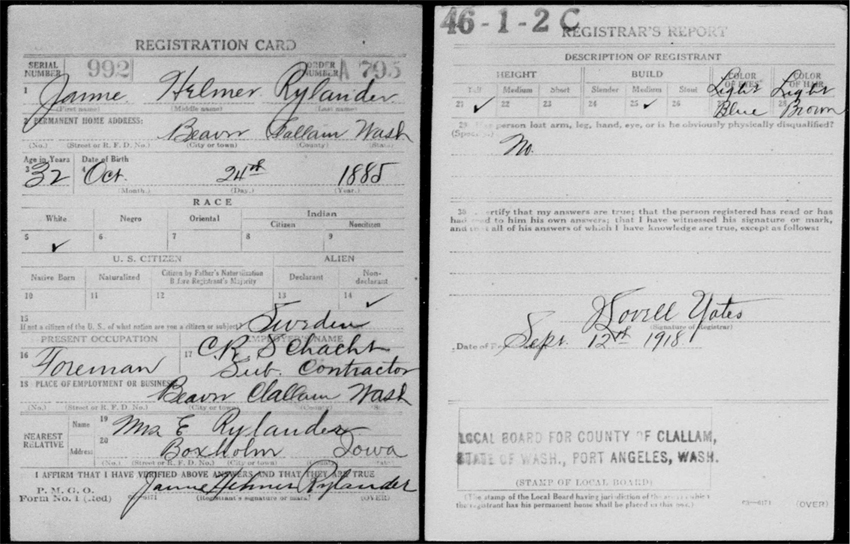 REGISTRATION CARD
SERIAL NUMBER 992 ORDER NUMBER A 795
1 Janne Helmer Rylander
(First name) (Middle name) (Last name)
2 PERMANENT HOME ADDRESS:
Beaver Clallam Wash
(No.) (Street or R. F. D. No.) (City or town) (County) (State)
Age in Years Date of Birth
3 32 4 Oct. 24th 1885
(Month.) (Day.) (Year.)
RACE
White Negro Oriental Indian
Citizen Noncitizen
5 ✓ 6 7 8 9
U. S. CITIZEN ALIEN
Native Born Naturalized Citizen by Father's Naturalization Before Registrant's Majority Declarant Non-declarant
10 11 12 13 14 ✓
15 Sweden
If not a citizen of the U. S., of what nation are you a citizen or subject?
PRESENT OCCUPATION EMPLOYER'S NAME
16 Foreman 17 C R Schacht
Sub. Contractor
18 PLACE OF EMPLOYMENT OR BUSINESS
Beaver Clallam Wash
(No.) (Street or R. F. D. No.) (City or town) (County) (State)
NEAREST RELATIVE Name 19 Mrs E Rylander
Address 20 Boxholm Iowa
(No.) (Street or R. F. D. No.) (City or town) (County) (State)
I AFFIRM THAT I HAVE VERIFIED ABOVE ANSWERS AND THAT THEY ARE TRUE
P. M. G. O.
Form No. 1 (Red) Janne Helmer Rylander
(Registrant's signature or mark) (OVER)
46-1-2 C
REGISTRAR'S REPORT
DESCRIPTION OF REGISTRANT
HEIGHT BUILD COLOR OF EYES COLOR OF HAIR
Tall Medium Short Slender Medium Stout Light Light
21 ✓ 22 23 24 25 ✓ 26 Blue Brown
29 Has person lost arm, leg, hand, eye, or is he obviously physically disqualified?
(Specify.)
No.
30 I certify that my answers are true; that the person registered has read or has
had read to him his own answers; that I have witnessed his signature or mark,
and that all of his answers of which I have knowledge are true, except as follows:
Lovell Yates
(Signature of Registrar)
Date of Registration Sept. 12th 1918
LOCAL BOARD FOR COUNTY OF CLALLAM,
STATE OF WASH., PORT ANGELES, WASH.
(STAMP OF LOCAL BOARD)
(The stamp of the Local Board having jurisdiction of the area in which
the registrant has his permanent home shall be placed in this box.)
(OVER)